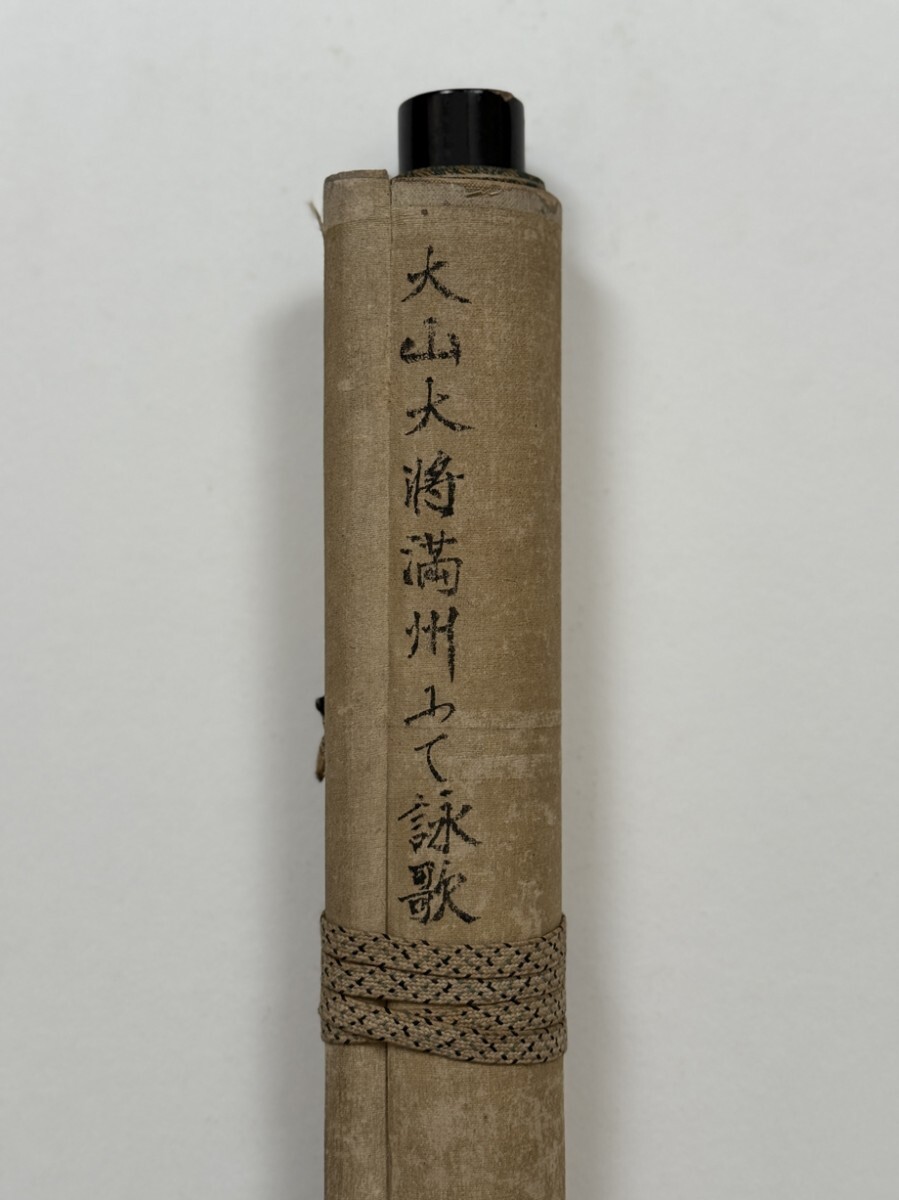 大山大將満州ふて詠歌